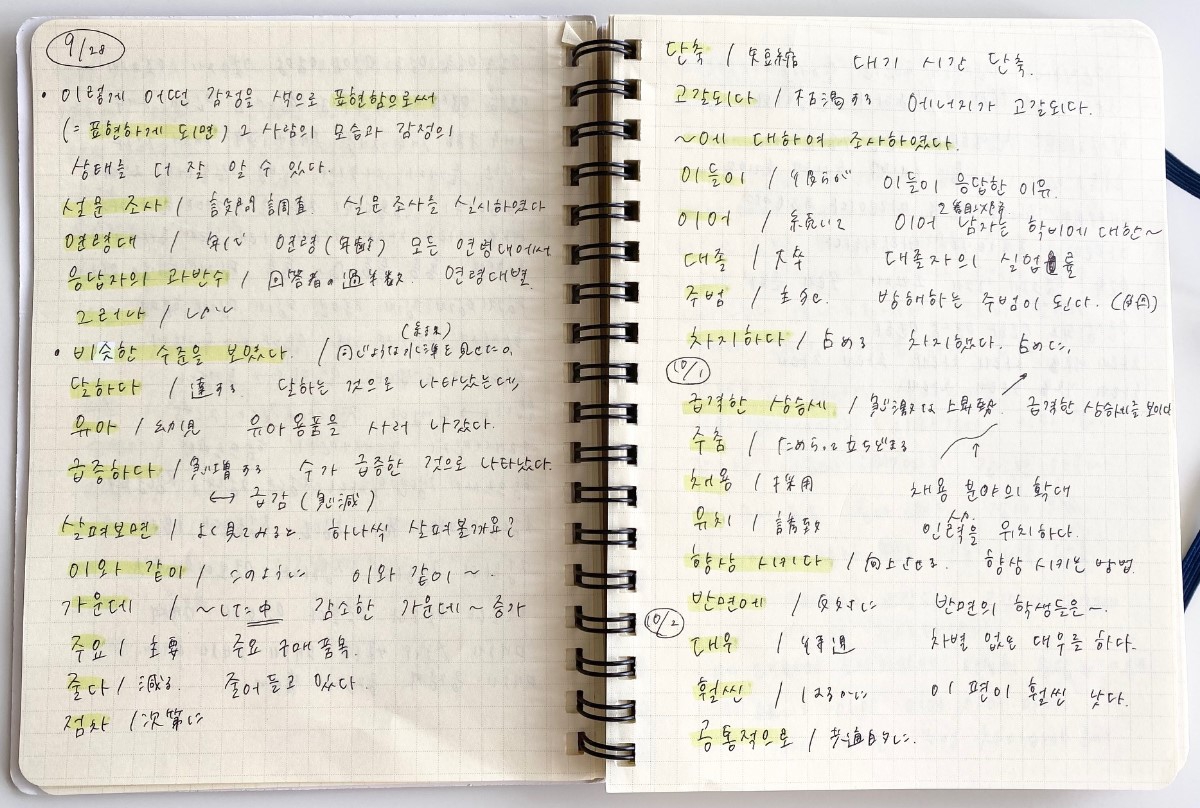 9/28
• 이렇게 어떤 감정을 색으로 표현함으로써
(= 표현하게 되면) 그 사람의 모습과 감정의
상태를 더 잘 알 수 있다.
설문 조사 / 設問調査. 설문 조사를 실시하였다
연령대 / 年代 연령(年齢) 모든 연령대에서
응답자의 과반수 / 回答者の過半数. 연령대별.
그러나 / しかし
• 비슷한 수준을 보였다. / 同じような水準を見せた。
달하다 / 達する 달하는 것으로 나타났는데,
유아 / 幼児 유아 용품을 사러 나갔다.
급증하다 / 急増する 수가 급증한 것으로 나타났다.
↔ 급감 (急減)
살펴보면 / よく見てみると 하나씩 살펴볼까요?
이와 같이 / このように 이와 같이 ~.
가운데 / ~した中 감소한 가운데 ~ 증가
주요 / 主要 주요 구매 품목.
줄다 / 減る. 줄어들고 있다.
점차 / 次第に
단축 / 短縮 대기 시간 단축.
고갈되다 / 枯渇する 에너지가 고갈되다.
~에 대하여 조사하였다.
이들이 / 彼らが 이들이 응답한 이유.
이어 / 続いて 이어 남자는 학비에 대한~
대졸 / 大卒 대졸자의 실업률
주범 / 主犯. 방해하는 주범이 된다.
차지하다 / 占める 차지했다. 占めた,
10/1
급격한 상승세 / 急激な上昇勢. 급격한 상승세를 보이다
주춤 / ためらって立ちどまる
채용 / 採用 채용 분야의 확대
유치 / 誘致 인력을 유치하다.
향상 시키다 / 向上させる. 향상 시키는 방법.
반면에 / 反対に 반면의 학생들은~.
10/2
대우 / 待遇 차별 없는 대우를 하다.
훨씬 / はるかに 이 편이 훨씬 낫다.
공통적으로 / 共通的に.